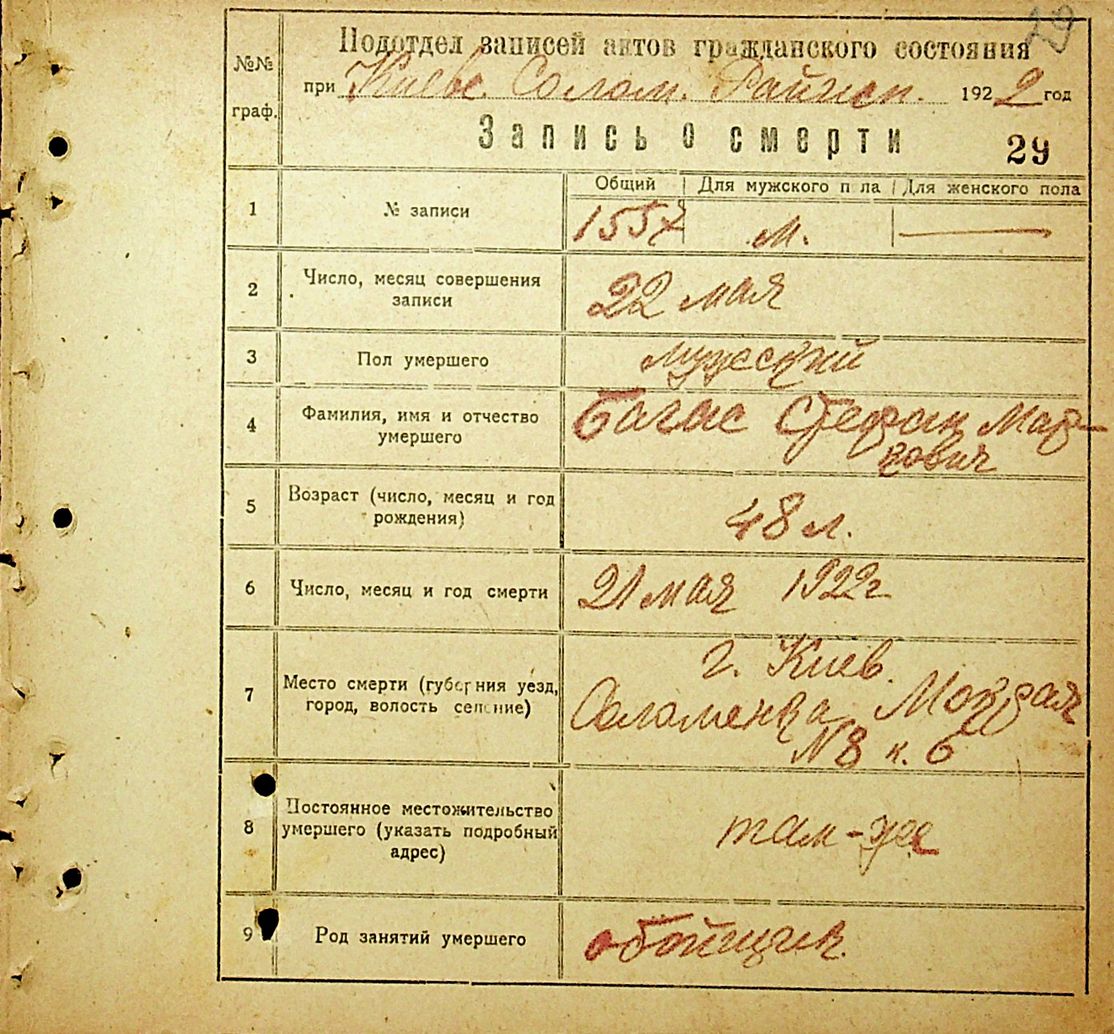 19
№№ граф.
Подотдел записей актов гражданского состояния
при Киеве. Солом. Райисп. 1922 год
Запись о смерти 29
1 № записи Общий Для мужского п ла Для женского пола
1557 м. —
2 Число, месяц совершения записи 22 мая
3 Пол умершего мужеский
4 Фамилия, имя и отчество умершего Багас Стефан Мар-
кович
5 Возраст (число, месяц и год рождения) 48 л.
6 Число, месяц и год смерти 21 мая 1922 г
7 Место смерти (губерния уезд, город, волость селение) г. Киев.
Соломенка Мокрая
N8 к. 6
8 Постоянное местожительство умершего (указать подробный адрес) там-же
9 Род занятий умершего обойщик.